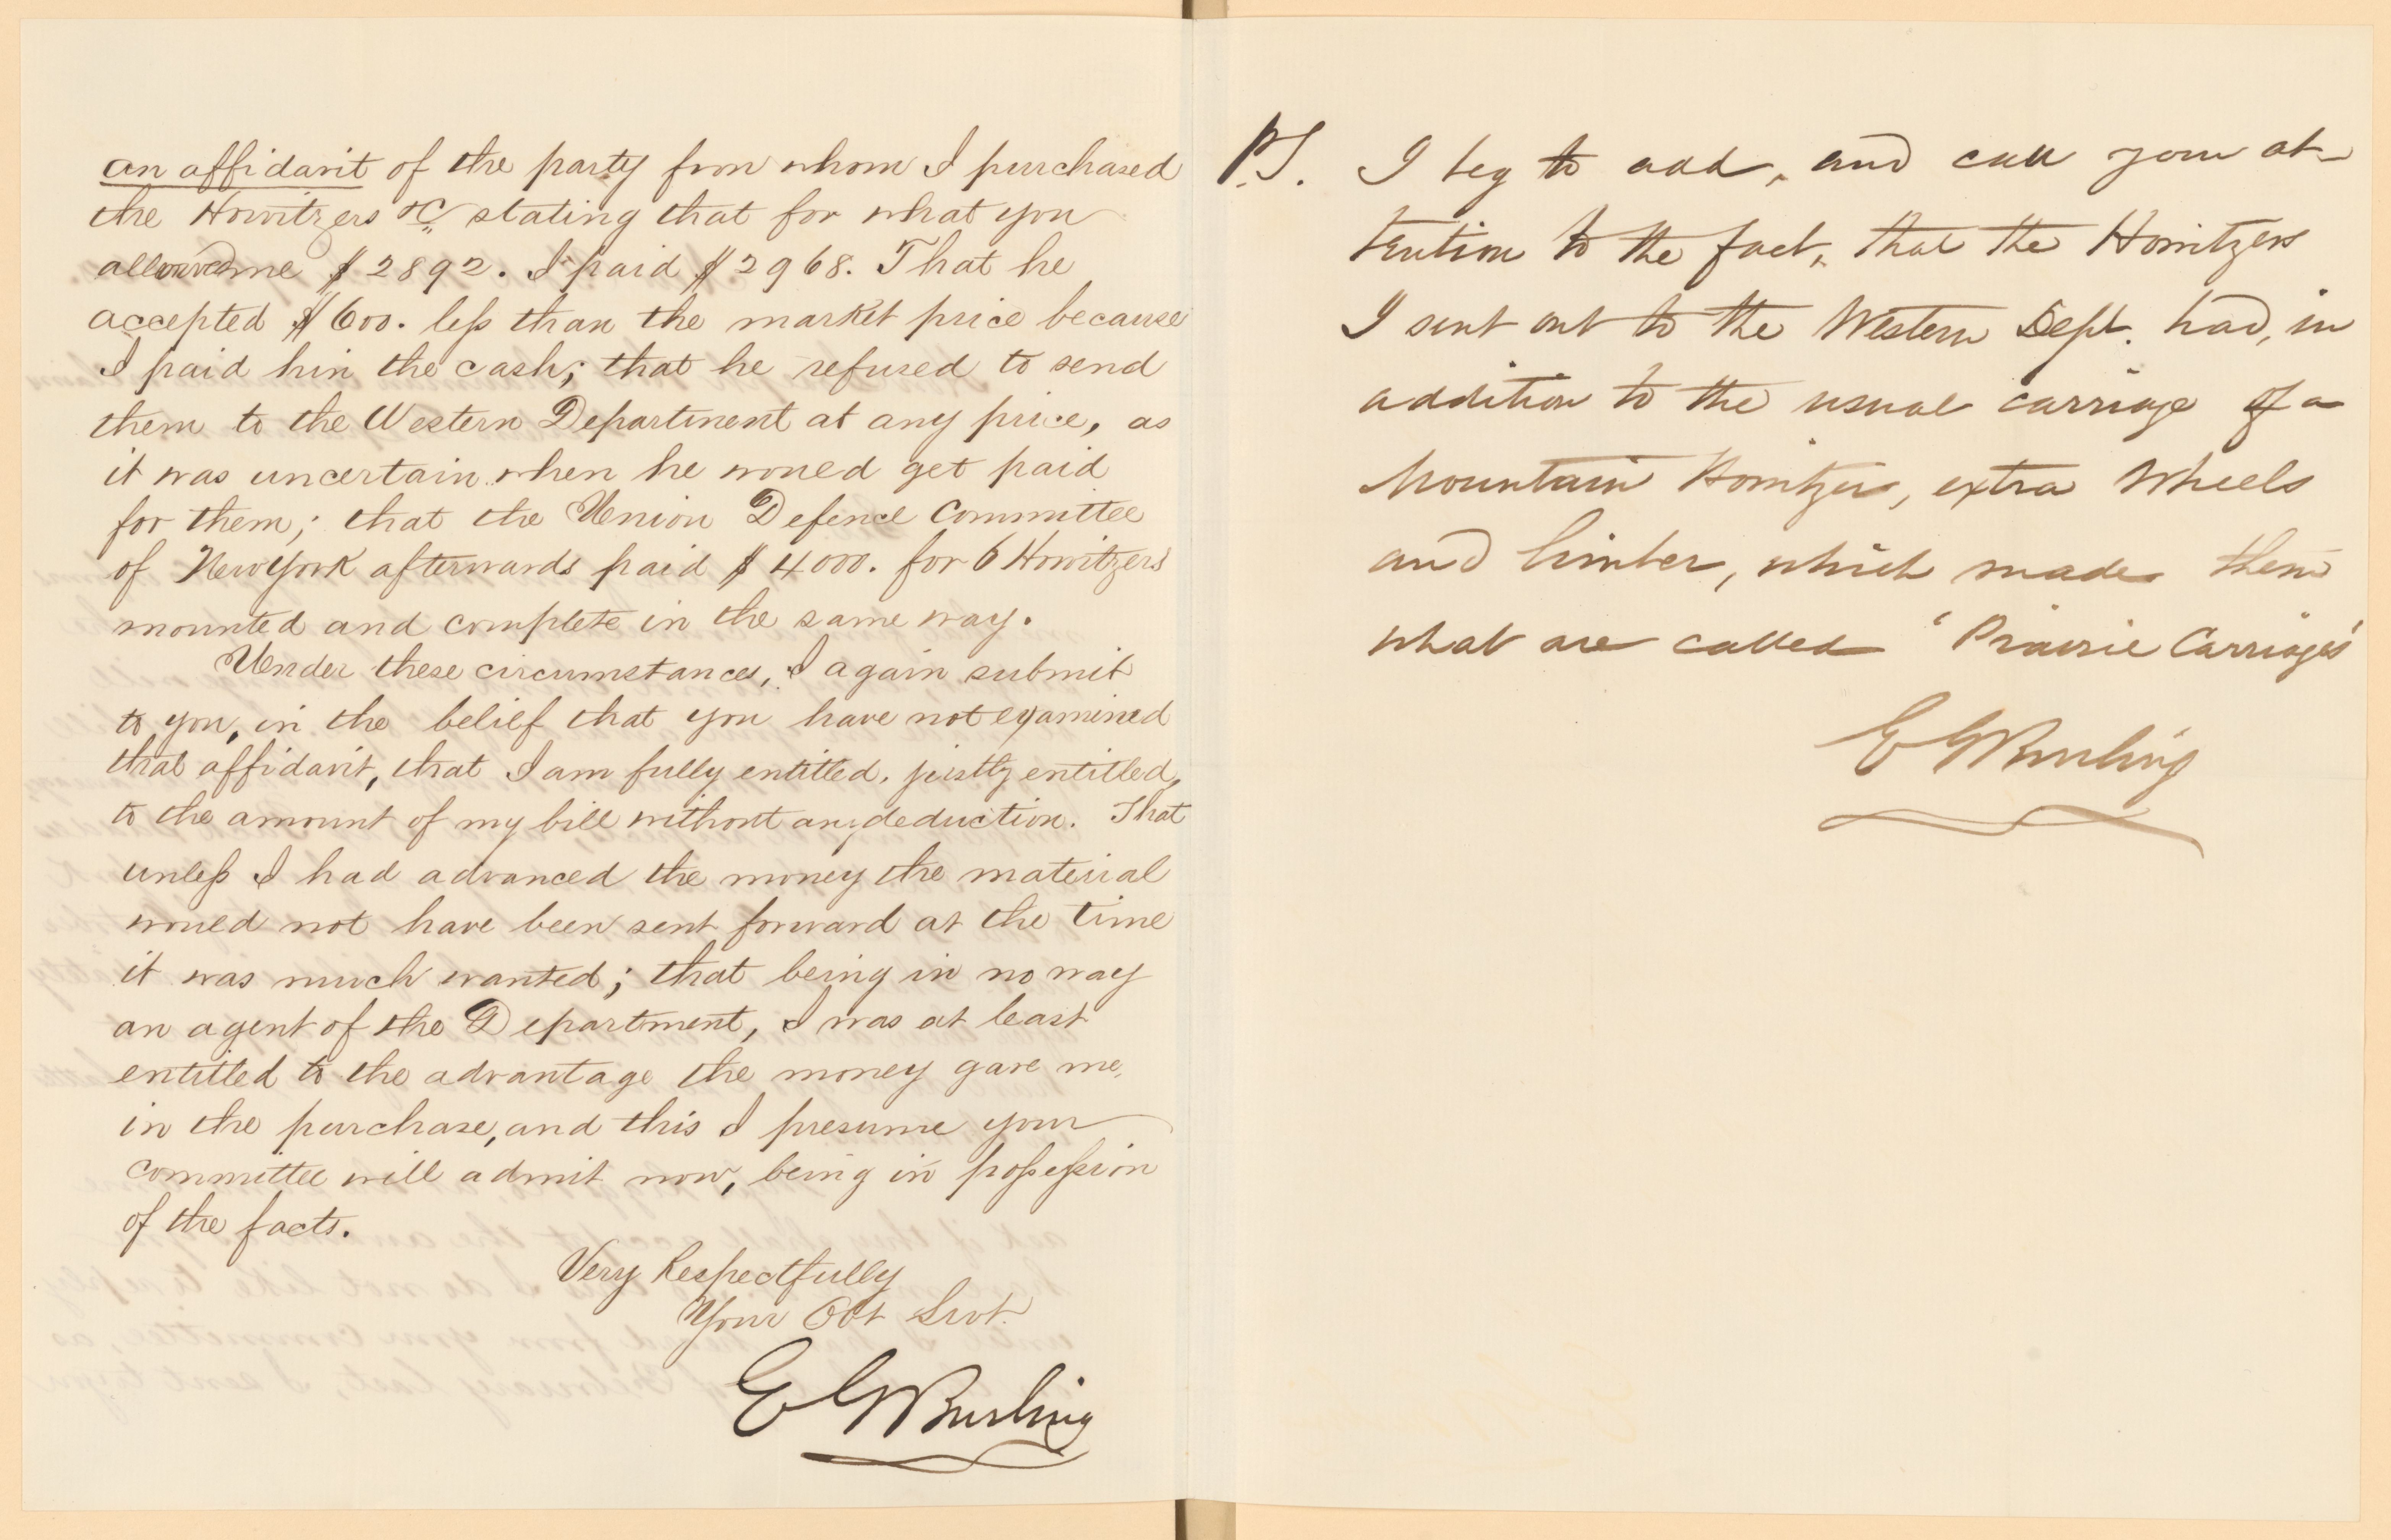 an affidavit of the party from whom I purchased
the Howitzers &c, stating that for what you
allowed me $2892. I paid $2968. That he
accepted $600. less than the market price because
I paid him the cash; that he refused to send
them to the Western Department at any price, as
it was uncertain when he would get paid
for them; that the Union Defence Committee
of New York afterwards paid $4000. for 6 Howitzers
mounted and complete in the same way.
Under these circumstances, I again submit
to you, in the belief that you have not examined
that affidavit, that I am fully entitled, justly entitled,
to the amount of my bill without any deduction. That
unless I had advanced the money the material
would not have been sent forward at the time
it was much wanted; that being in no way
an agent of the Department, I was at least
entitled to the advantage the money gave me,
in the purchase, and this I presume your
committee will admit now, being in possession
of the facts.
Very Respectfully
Your Obt Srvt.
E G Burling
P.S. I beg to add, and call your at-
tention to the fact, that the Howitzers
I sent out to the Western Dept. had, in
addition to the usual carriage of a
Mountain Howitzer, extra Wheels
and limber, which made them
what are called "Prairie Carriages"
E G Burling